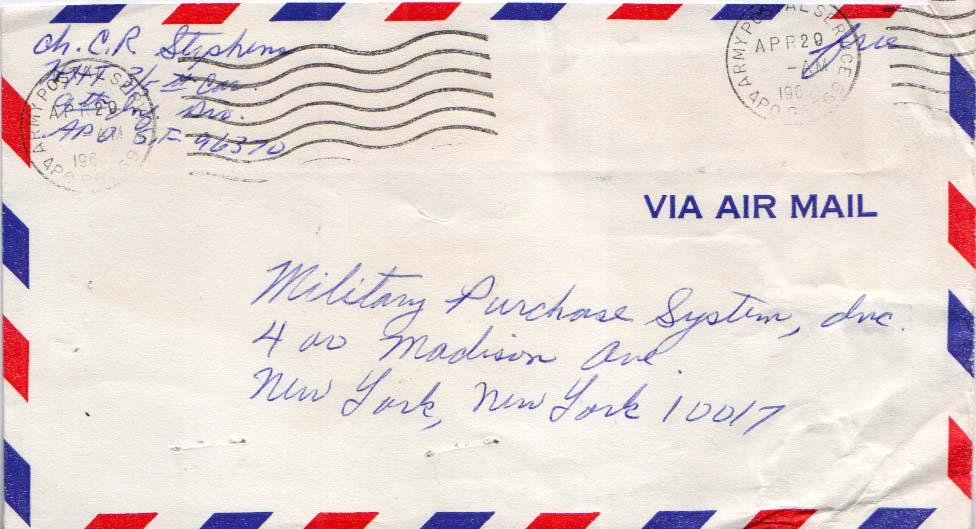 Ch. C.R. Stephens
HHT 3/5th Cav.
9th Inf. Div.
APO S.F. 96370
ARMY POSTAL SERVICE
APR 29
-AM
196
APO
ARMY POSTAL SERVICE
APR 29
-AM
196
APO
Free
VIA AIR MAIL
Military Purchase System, Inc.
400 Madison Ave.
New York, New York 10017